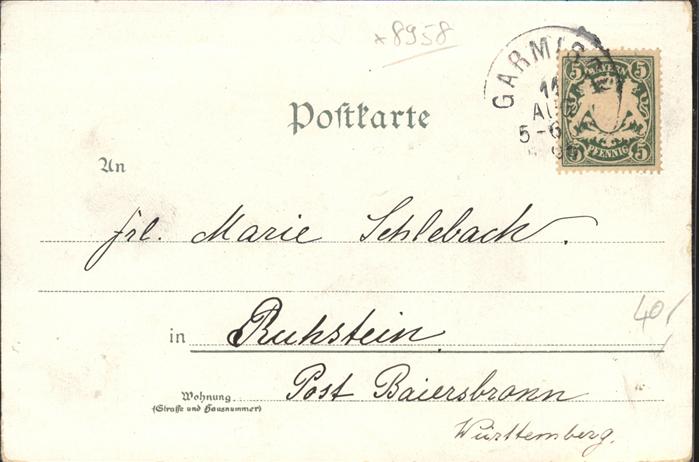 *8958
GARMISCH
AUG
5-6
5 BAYERN 5
5 PFENNIG 5
Postkarte
An
Frl. Marie Schleback.
40/
in Ruhstein
Wohnung
(Straße und Hausnummer)
Post Baiersbronn
Württemberg.